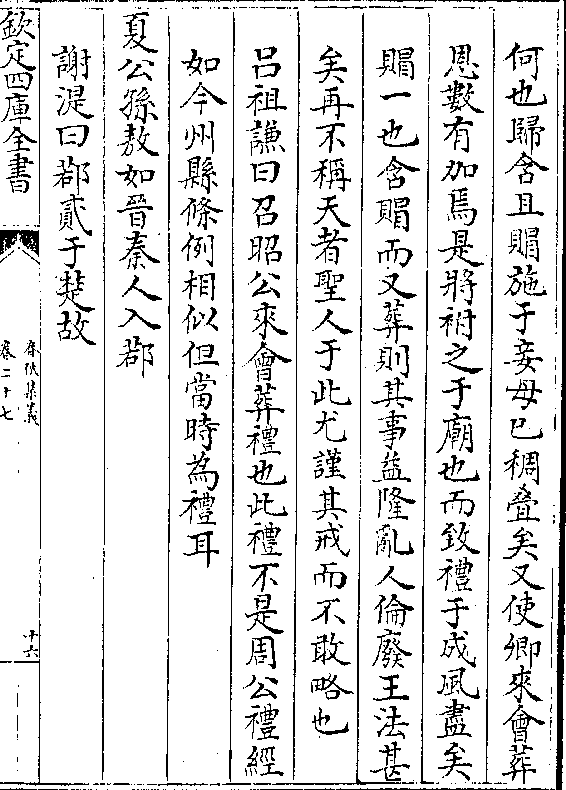 何也歸含且賵施于妾母已稠叠矣又使卿來會葬
恩數有加焉是將祔之于廟也而致禮于成風盡矣
賵一也含賵而又葬則其事益隆亂人倫廢王法甚
矣再不稱天者聖人于此尤謹其戒而不敢略也
吕祖謙曰召昭公來會葬禮也此禮不是周公禮經
如今州縣條例相似但當時為禮耳
夏公孫敖如晉秦人入鄀
謝湜曰鄀貳于楚故
欽定四庫全書
春秋集義
卷二十七
十六